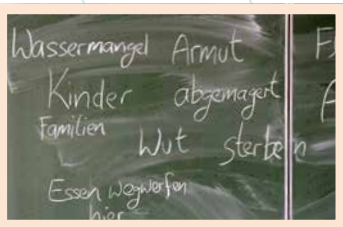 Wassermangel Armut
Kinder abgemagert
Familien
Wut sterben
Essen wegwerfen
hier